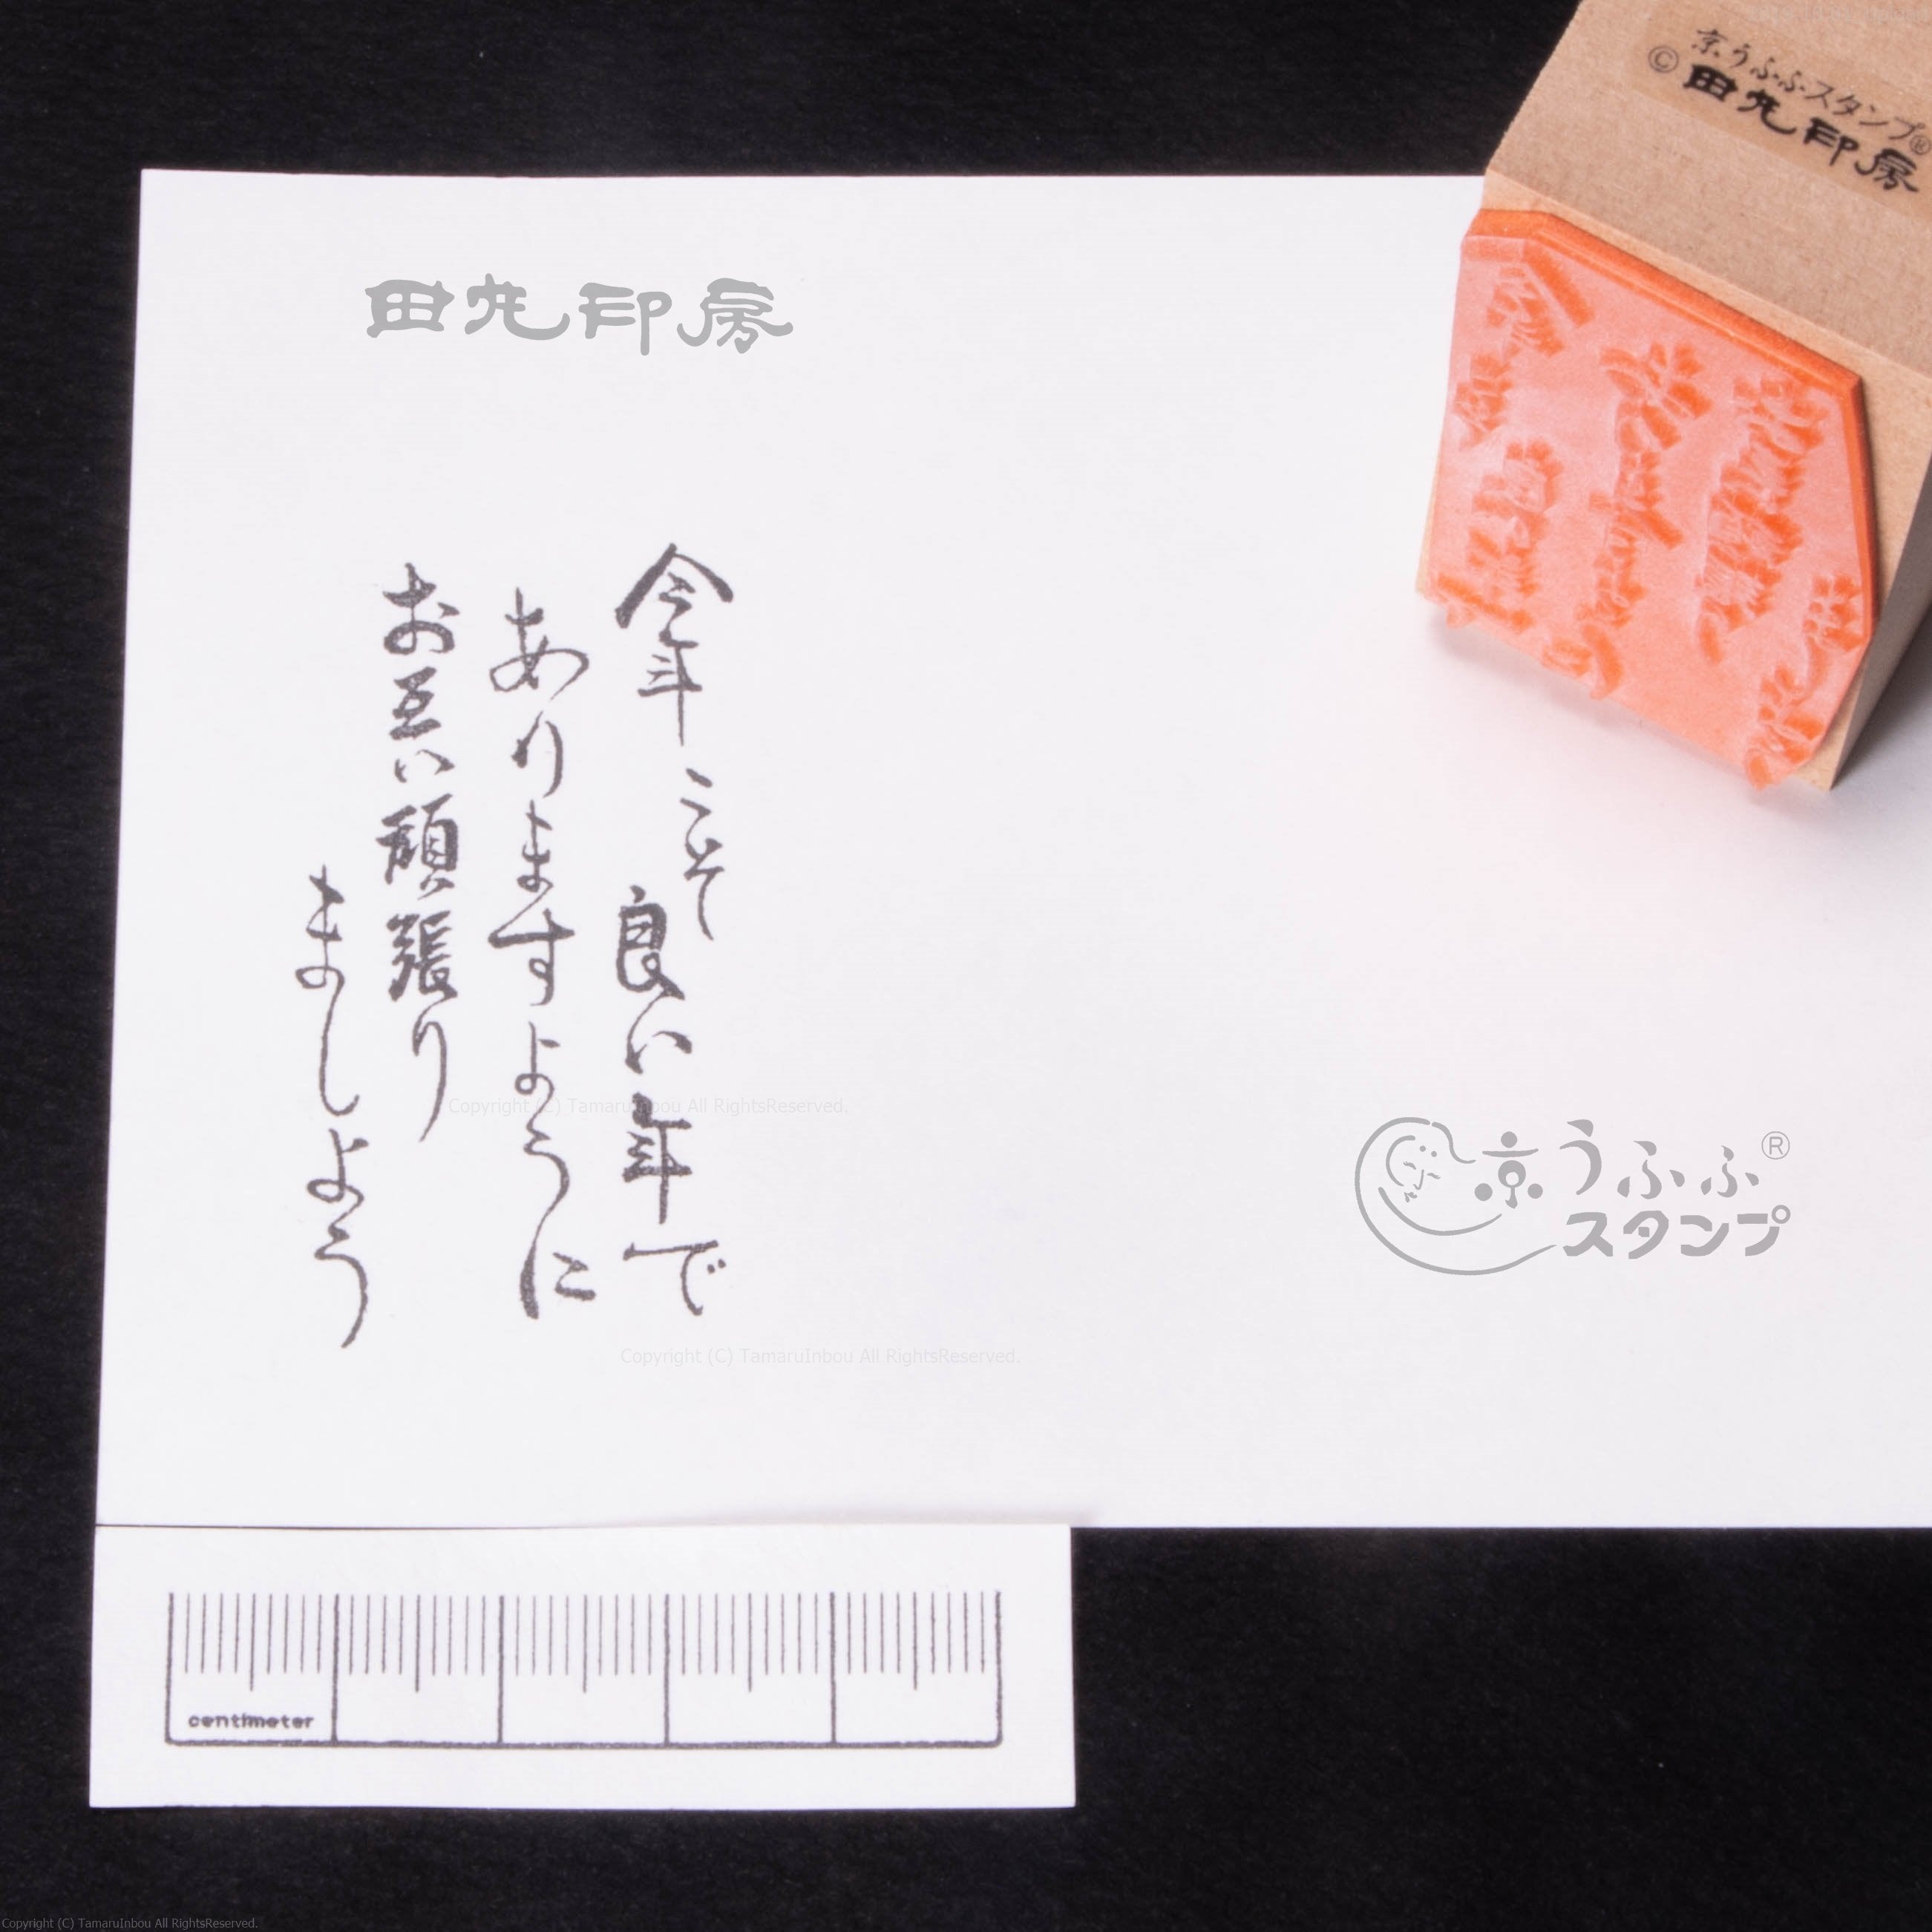 京うふふスタンプ®
©田丸印房
田丸印房
今年こそ良い年で
ありますように
お互い頑張り
ましょう
Copyright (C) TamaruInbou All RightsReserved.
京うふふ®
スタンプ
Copyright (C) TamaruInbou All RightsReserved.
centimeter
Copyright (C) TamaruInbou All RightsReserved.